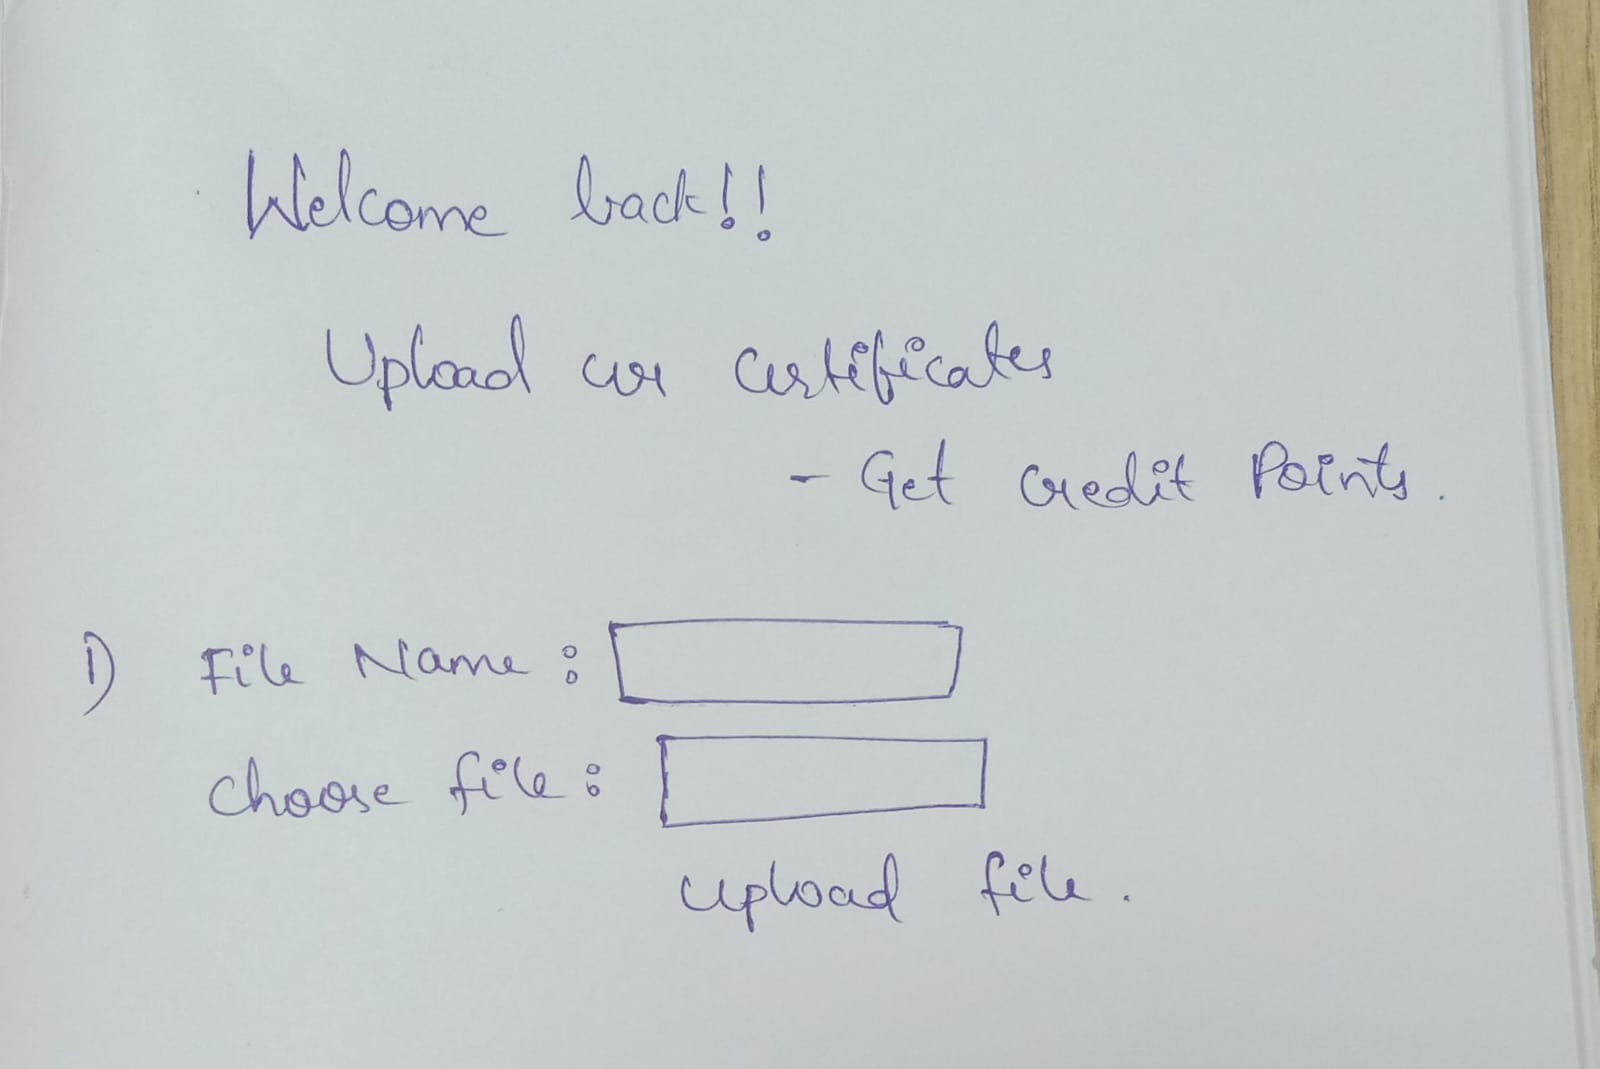 Welcome back!!
Upload ur certificates
- Get Credit Points.
1) File Name :
Choose file :
Upload file.